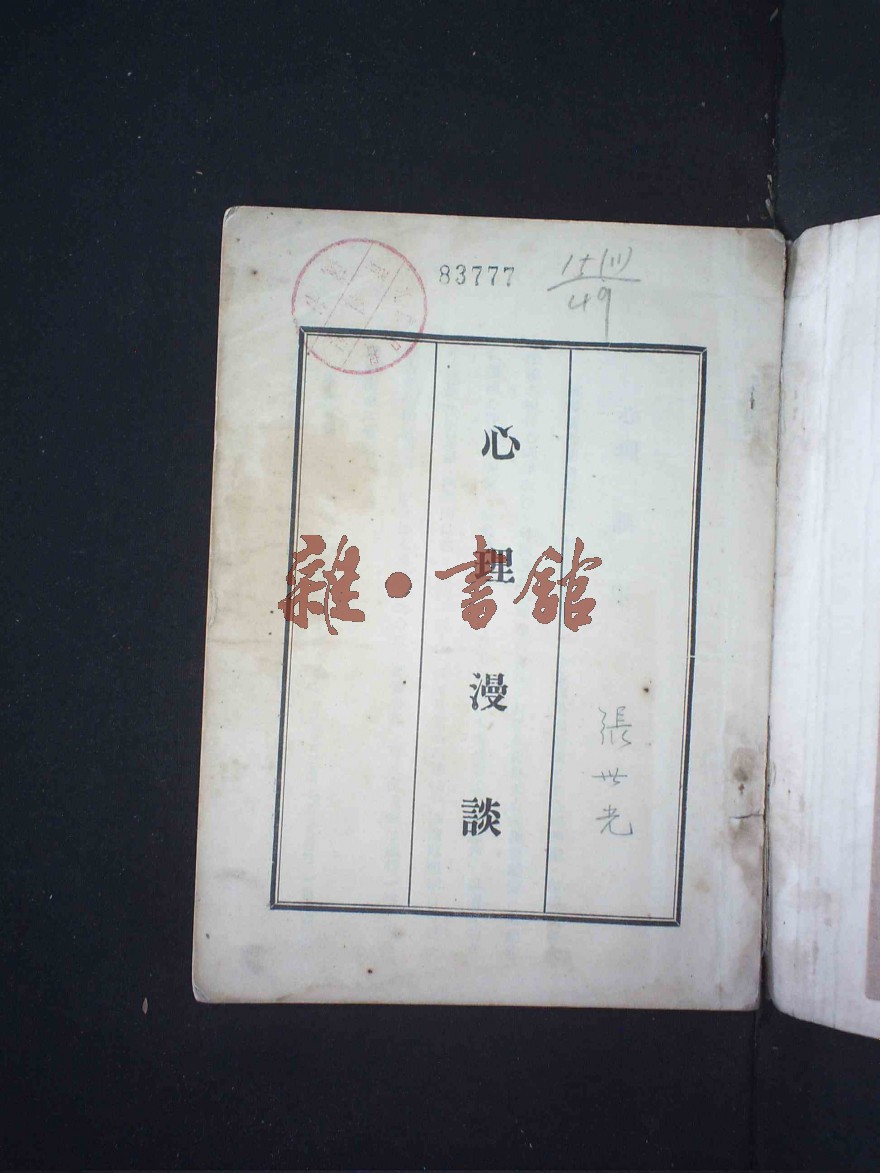 83777
15(111)
49
心理漫談
張世光
雜·書館